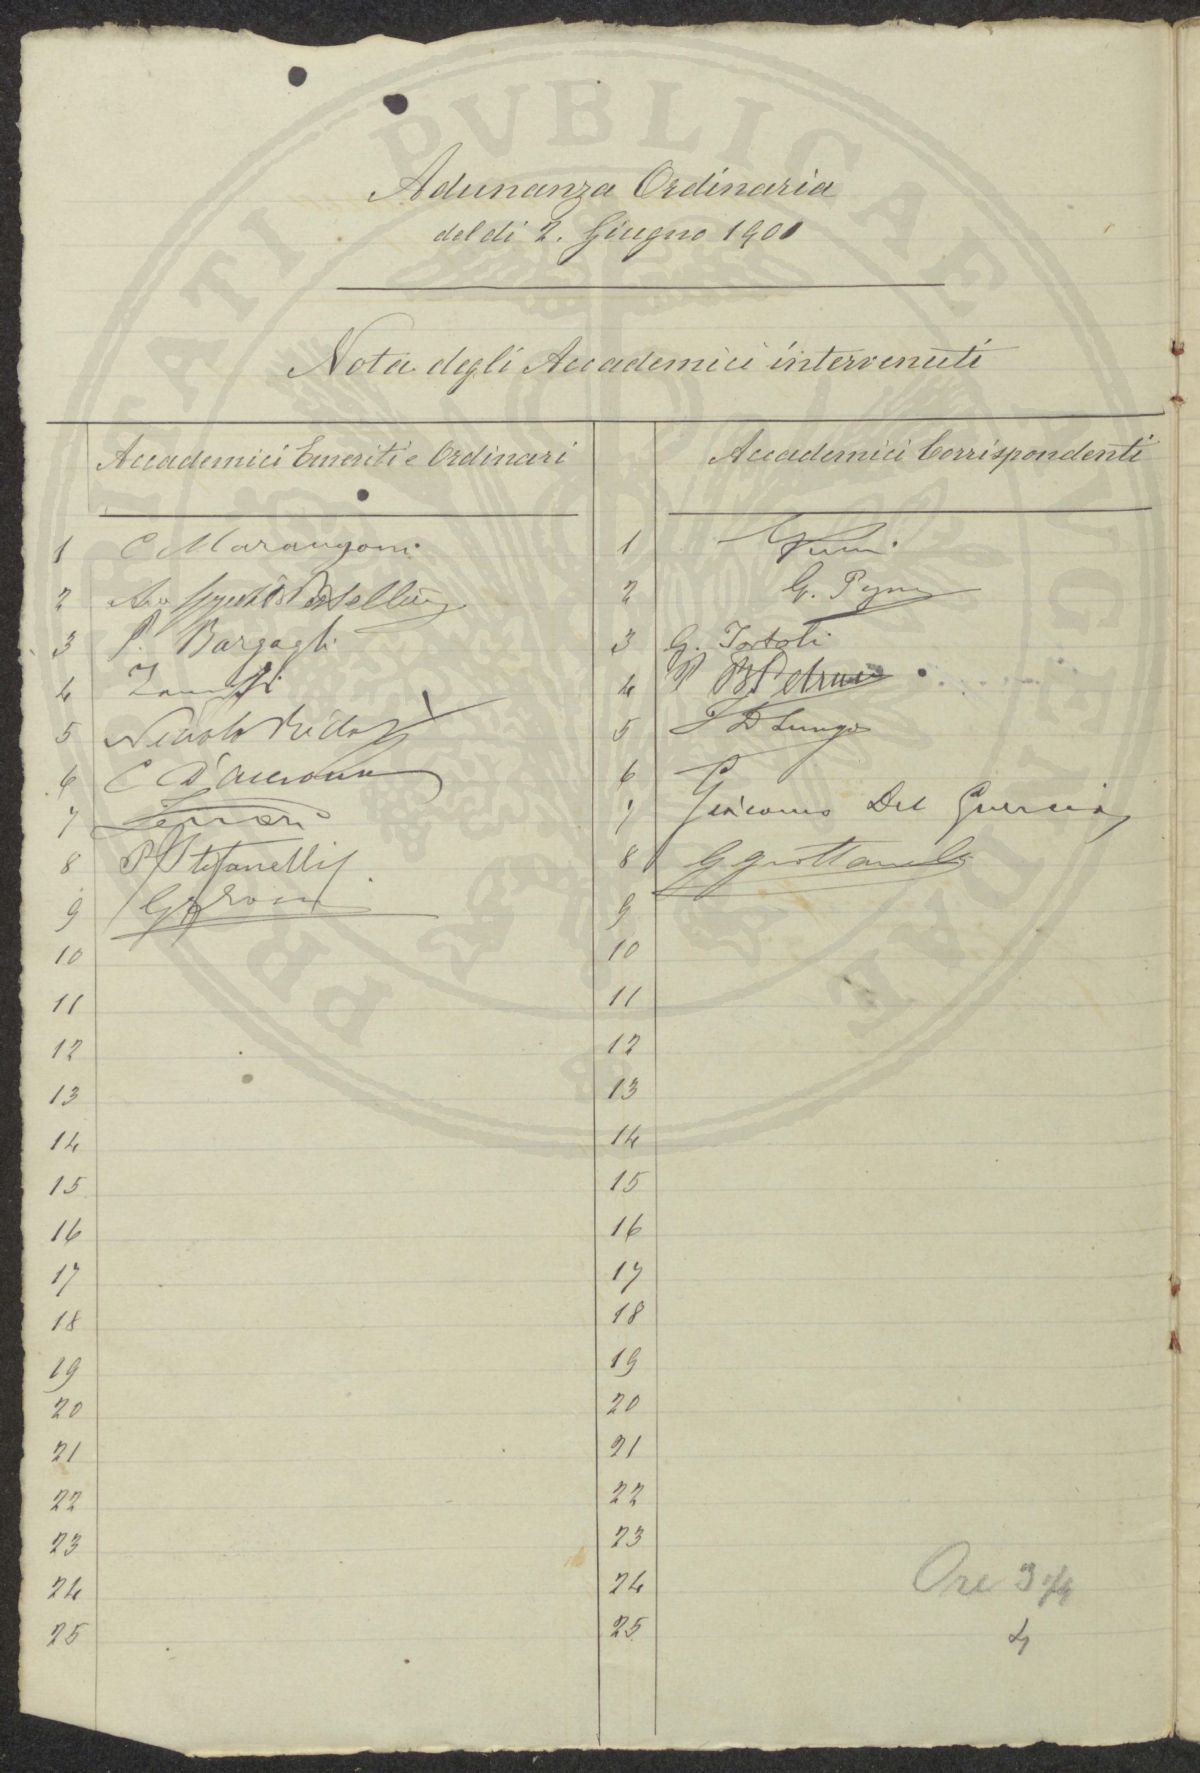 PROSPERITATI PUBLICAE AUGENDAE
Adunanza Ordinaria
del di 2. Giugno 1901
Nota degli Accademici intervenuti
Accademici Emeriti e Ordinari
Accademici Corrispondenti
1 C Marangoni
2
3 P. Bargagli
4
5
6 C D'Ancona
7
8 P Stefanelli
9
10
11
12
13
14
15
16
17
18
19
20
21
22
23
24
25
1
2 G.
3 G. Tortoli
4 Petrucci
5 I D Lungo
6
7 Giacomo Del Guercio
8 G Grottanelli
9
10
11
12
13
14
15
16
17
18
19
20
21
22
23
24
25
Ore 3
4